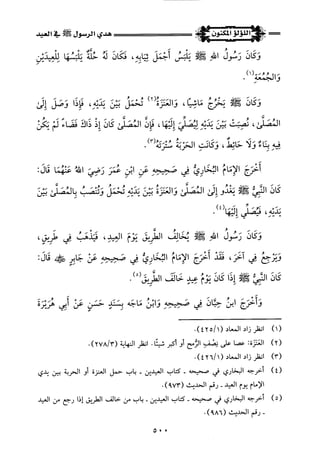 اللؤلؤ المكنون
هدي الرسول ﷺ في العيد
وَكَانَ رَسُولُ اللهِ ﷺ يَلْبَسُ أَجْمَلَ ثِيَابِهِ، فَكَانَ لَهُ حُلَّةٌ يَلْبَسُهَا لِلْعِيدَيْنِ
وَالْجُمُعَةِ(١).
وَكَانَ ﷺ يَخْرُجُ مَاشِيًا، وَالعَنَزَةُ(٢) تُحْمَلُ بَيْنَ يَدَيْهِ، فَإِذَا وَصَلَ إِلَى
المُصَلَّى، نُصِبَتْ بَيْنَ يَدَيْهِ لِيُصَلِّيَ إِلَيْهَا، فَإِنَّ المُصَلَّى كَانَ إِذْ ذَاكَ فَضَاءً لَمْ يَكُنْ
فِيهِ بِنَاءٌ وَلَا حَائِطٌ، وَكَانَتِ الحَرْبَةُ سُتْرَتَهُ(٣).
أَخْرَجَ الإِمَامُ البُخَارِيُّ فِي صَحِيحِهِ عَنِ ابْنِ عُمَرَ رَضِيَ اللهُ عَنْهُمَا قَالَ:
كَانَ النَّبِيُّ ﷺ يَغْدُو إِلَى المُصَلَّى وَالعَنَزَةُ بَيْنَ يَدَيْهِ تُحْمَلُ وَتُنْصَبُ بِالمُصَلَّى بَيْنَ
يَدَيْهِ، فَيُصَلِّي إِلَيْهَا(٤).
وَكَانَ رَسُولُ اللهِ ﷺ يُخَالِفُ الطَّرِيقَ يَوْمَ العِيدِ، فَيَذْهَبُ فِي طَرِيقٍ،
وَيَرْجِعُ فِي آخَرَ، فَقَدْ أَخْرَجَ الإِمَامُ البُخَارِيُّ فِي صَحِيحِهِ عَنْ جَابِرٍ ﷺ قَالَ:
كَانَ النَّبِيُّ ﷺ إِذَا كَانَ يَوْمُ عِيدٍ خَالَفَ الطَّرِيقَ(٥).
وَأَخْرَجَ ابنُ حِبَّانَ فِي صَحِيحِهِ وَابْنُ مَاجَه بِسَنَدٍ حَسَنٍ عَنْ أَبِي هُرَيْرَةَ
(١) انظر زاد المعاد (٤٢٥/١).
(٢) العَنَزَة: عصا على نِصْفِ الرُّمح أو أكبر شيئًا. انظر النهاية (٢٧٨/٣).
(٣) انظر زاد المعاد (٤٢٦/١).
(٤) أخرجه البخاري في صحيحه - كتاب العيدين - باب حمل العنزة أو الحربة بين يدي
الإمام يوم العيد - رقم الحديث (٩٧٣).
(٥) أخرجه البخاري في صحيحه - كتاب العيدين - باب من خالف الطريق إذا رجع من العيد
- رقم الحديث (٩٨٦).
٥٠٠